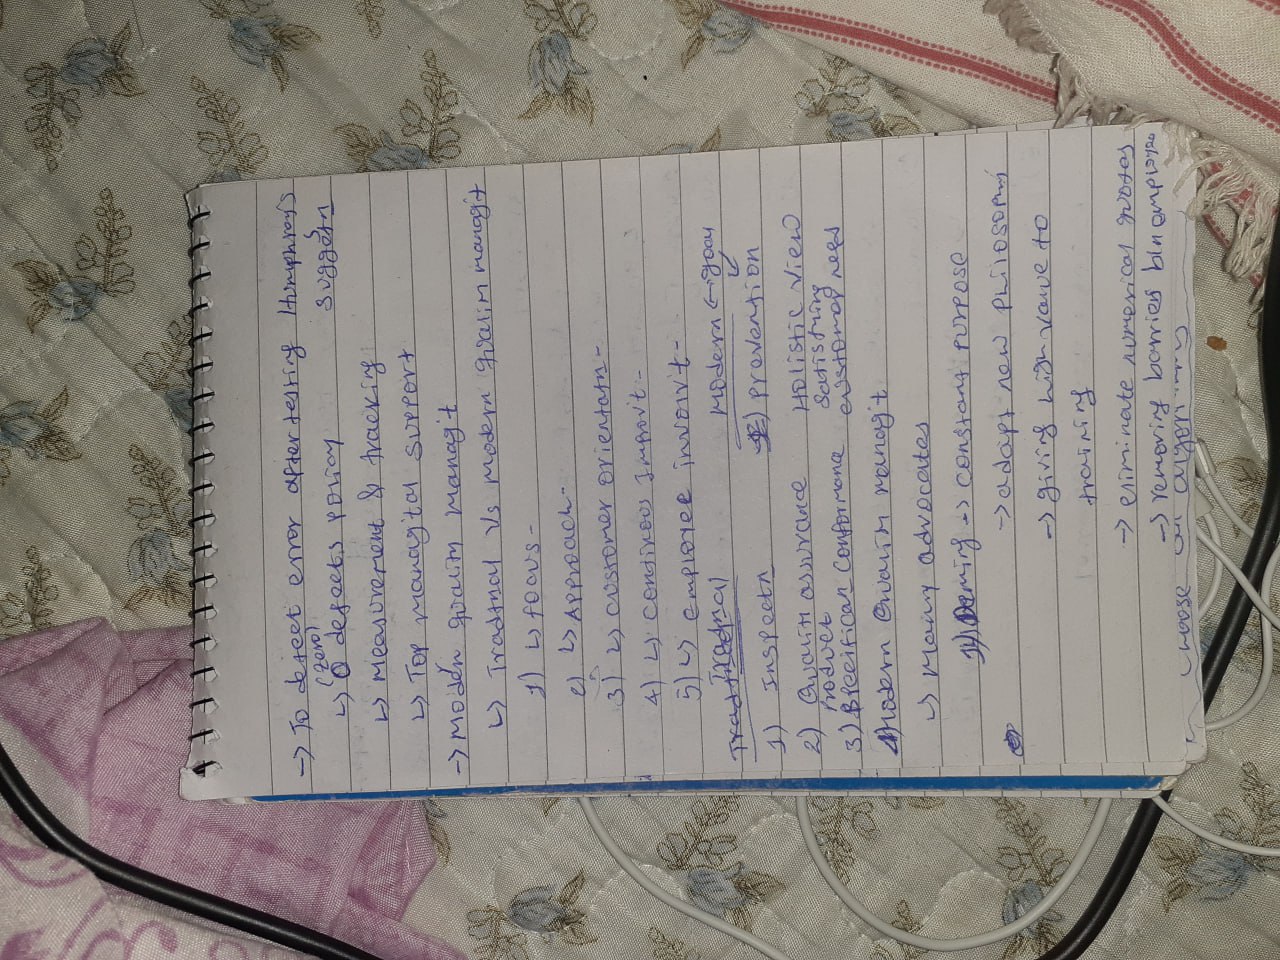 → To detect error after testing Humphrey's
suggestn
(zero)
↳ 0 defects policy
↳ Measurement & tracking
↳ Top managital support
→ Modern quality managit
↳ Traditnal Vs modern quality managit
1) ↳ focus -
2) ↳ Approach -
3) ↳ customer orientatn -
4) ↳ continous improvt -
5) ↳ employee involvt -
Traditnal Modern ← goay
1) Inspectn prevention
2) Quality assurance Holistic view
3) Product Specifican Conformance satisfying customer needs
4) Modern Quality managit
↳ Many advocates
1) Deming → constany purpose
→ adapt new philosophy
→ giving high value to
training
→ eliminate numerical quotas
→ removing barries b/n employee
choose an